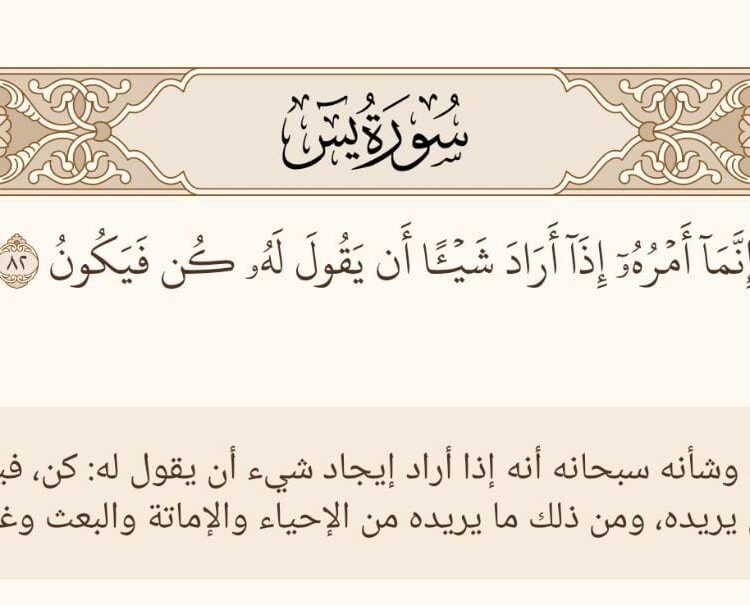 سورة يس
إِنَّمَآ أَمْرُهُۥٓ إِذَآ أَرَادَ شَيْـًٔا أَن يَقُولَ لَهُۥ كُن فَيَكُونُ ٨٢
وشأنه سبحانه أنه إذا أراد إيجاد شيء أن يقول له: كن،
يريده، ومن ذلك ما يريده من الإحياء والإماتة والبعث